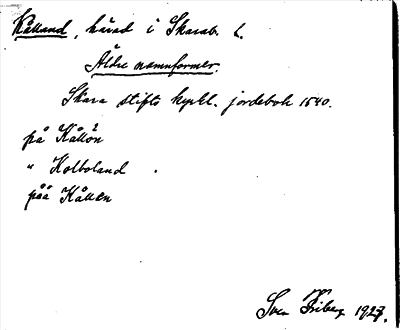 Kålland, härad i Skarab. l.
Äldre namnformer.
Skara stifts kyrkl. jordebok 1540.
på Kållön
" Kolboland
påå Kållen
Sven Friberg 1927.